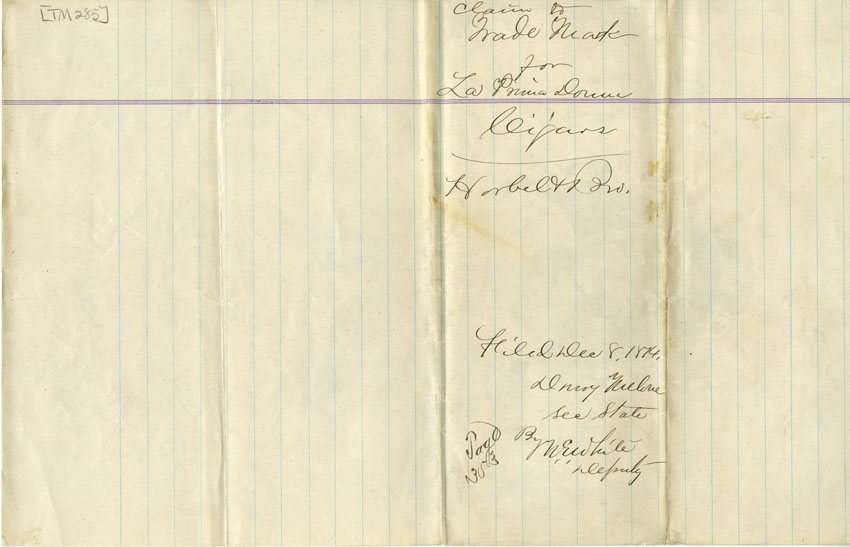 [TM 285]
Claim to
Trade Mark
for
La Prima Donna
Cigars
Horbelt & Bro.
Filed Dec 8, 1874.
Drury Melone
Sec State
By W E White
Deputy
Page